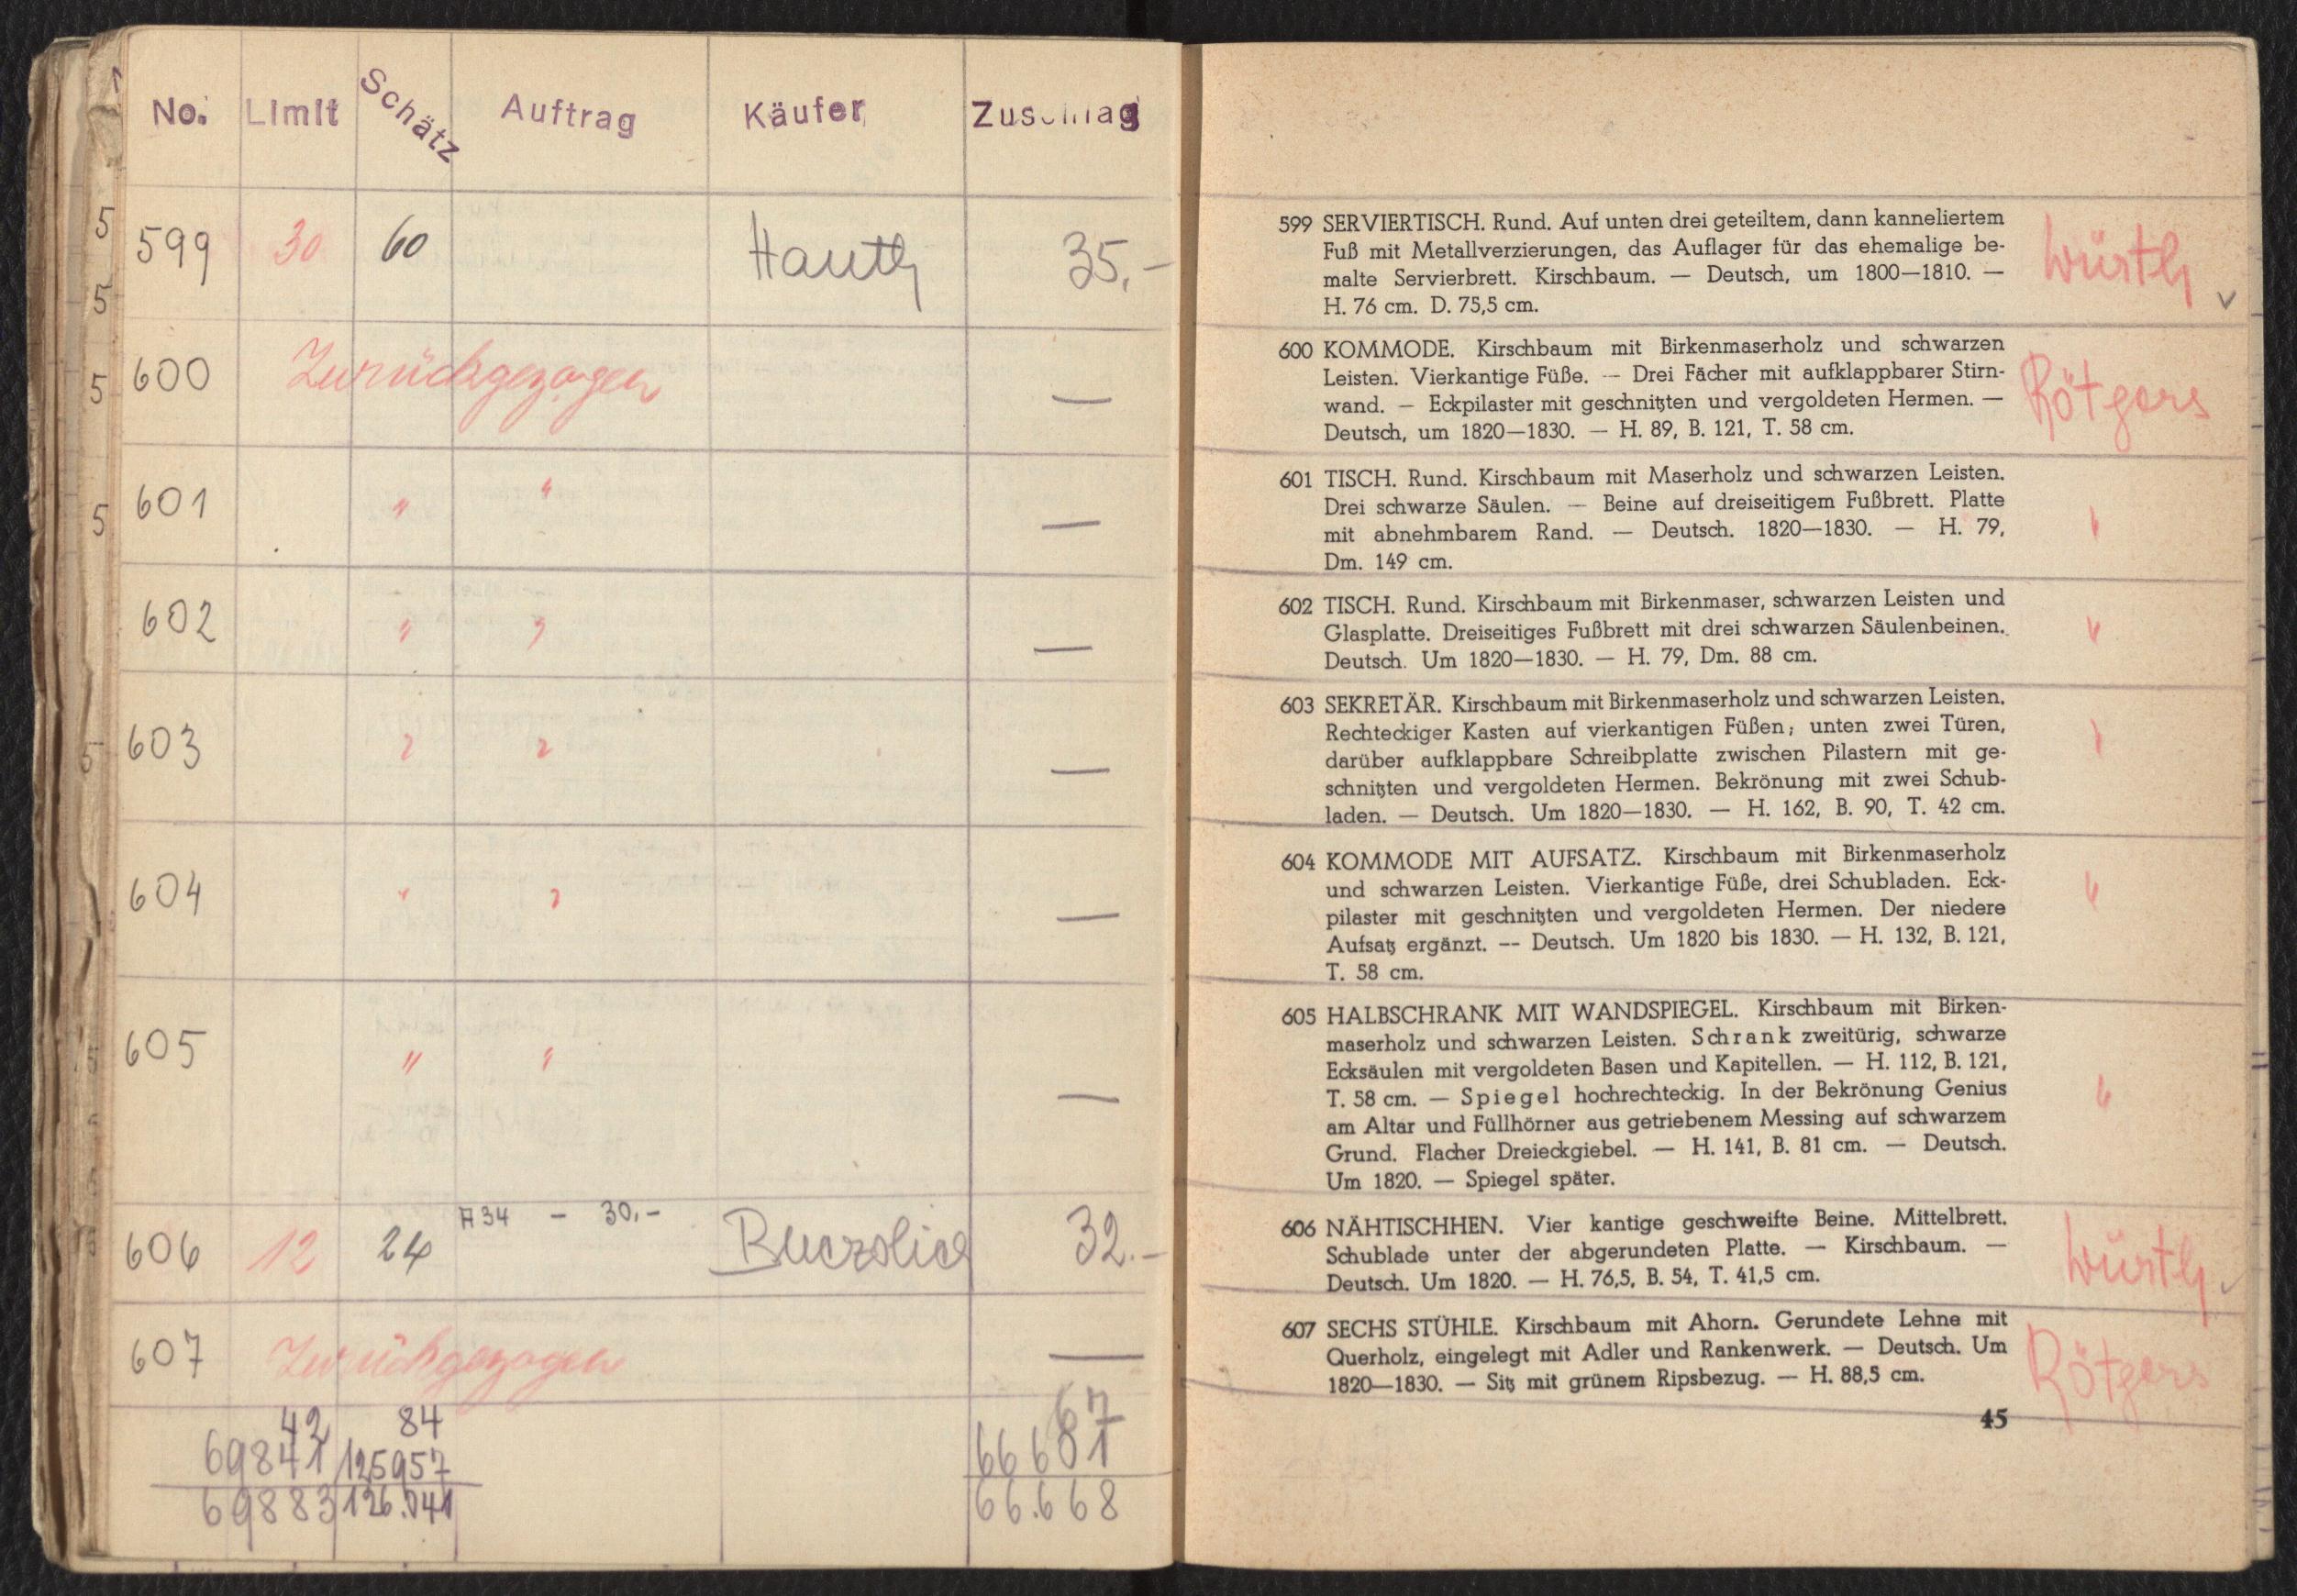 No. Limit Schätz Auftrag Käufer Zuschlag
599 30 60 Hauth 35,-
600 Zurückgezogen —
601 " " —
602 " " —
603 " " —
604 " " —
605 " " —
606 12 24 A34 - 30,- 32.-
607 Zurückgezogen —
42 84 67
69841 125957
69883 126.041 66.668
599 SERVIERTISCH. Rund. Auf unten drei geteiltem, dann kanneliertem
Fuß mit Metallverzierungen, das Auflager für das ehemalige be-
malte Servierbrett. Kirschbaum. — Deutsch, um 1800—1810. —
H. 76 cm. D. 75,5 cm.
Würth
600 KOMMODE. Kirschbaum mit Birkenmaserholz und schwarzen
Leisten. Vierkantige Füße. — Drei Fächer mit aufklappbarer Stirn-
wand. — Eckpilaster mit geschnitzten und vergoldeten Hermen. —
Deutsch, um 1820—1830. — H. 89, B. 121, T. 58 cm.
Rötgers
601 TISCH. Rund. Kirschbaum mit Maserholz und schwarzen Leisten.
Drei schwarze Säulen. — Beine auf dreiseitigem Fußbrett. Platte
mit abnehmbarem Rand. — Deutsch. 1820—1830. — H. 79,
Dm. 149 cm.
"
602 TISCH. Rund. Kirschbaum mit Birkenmaser, schwarzen Leisten und
Glasplatte. Dreiseitiges Fußbrett mit drei schwarzen Säulenbeinen.
Deutsch. Um 1820—1830. — H. 79, Dm. 88 cm.
"
603 SEKRETÄR. Kirschbaum mit Birkenmaserholz und schwarzen Leisten.
Rechteckiger Kasten auf vierkantigen Füßen; unten zwei Türen,
darüber aufklappbare Schreibplatte zwischen Pilastern mit ge-
schnitzten und vergoldeten Hermen. Bekrönung mit zwei Schub-
laden. — Deutsch. Um 1820—1830. — H. 162, B. 90, T. 42 cm.
"
604 KOMMODE MIT AUFSATZ. Kirschbaum mit Birkenmaserholz
und schwarzen Leisten. Vierkantige Füße, drei Schubladen. Eck-
pilaster mit geschnitzten und vergoldeten Hermen. Der niedere
Aufsatz ergänzt. -- Deutsch. Um 1820 bis 1830. — H. 132, B. 121,
T. 58 cm.
"
605 HALBSCHRANK MIT WANDSPIEGEL. Kirschbaum mit Birken-
maserholz und schwarzen Leisten. Schrank zweitürig, schwarze
Ecksäulen mit vergoldeten Basen und Kapitellen. — H. 112, B. 121,
T. 58 cm. — Spiegel hochrechteckig. In der Bekrönung Genius
am Altar und Füllhörner aus getriebenem Messing auf schwarzem
Grund. Flacher Dreieckgiebel. — H. 141, B. 81 cm. — Deutsch.
Um 1820. — Spiegel später.
"
606 NÄHTISCHHEN. Vier kantige geschweifte Beine. Mittelbrett.
Schublade unter der abgerundeten Platte. — Kirschbaum. —
Deutsch. Um 1820. — H. 76,5, B. 54, T. 41,5 cm.
Würth
607 SECHS STÜHLE. Kirschbaum mit Ahorn. Gerundete Lehne mit
Querholz, eingelegt mit Adler und Rankenwerk. — Deutsch. Um
1820—1830. — Sitz mit grünem Ripsbezug. — H. 88,5 cm.
Rötgers
45